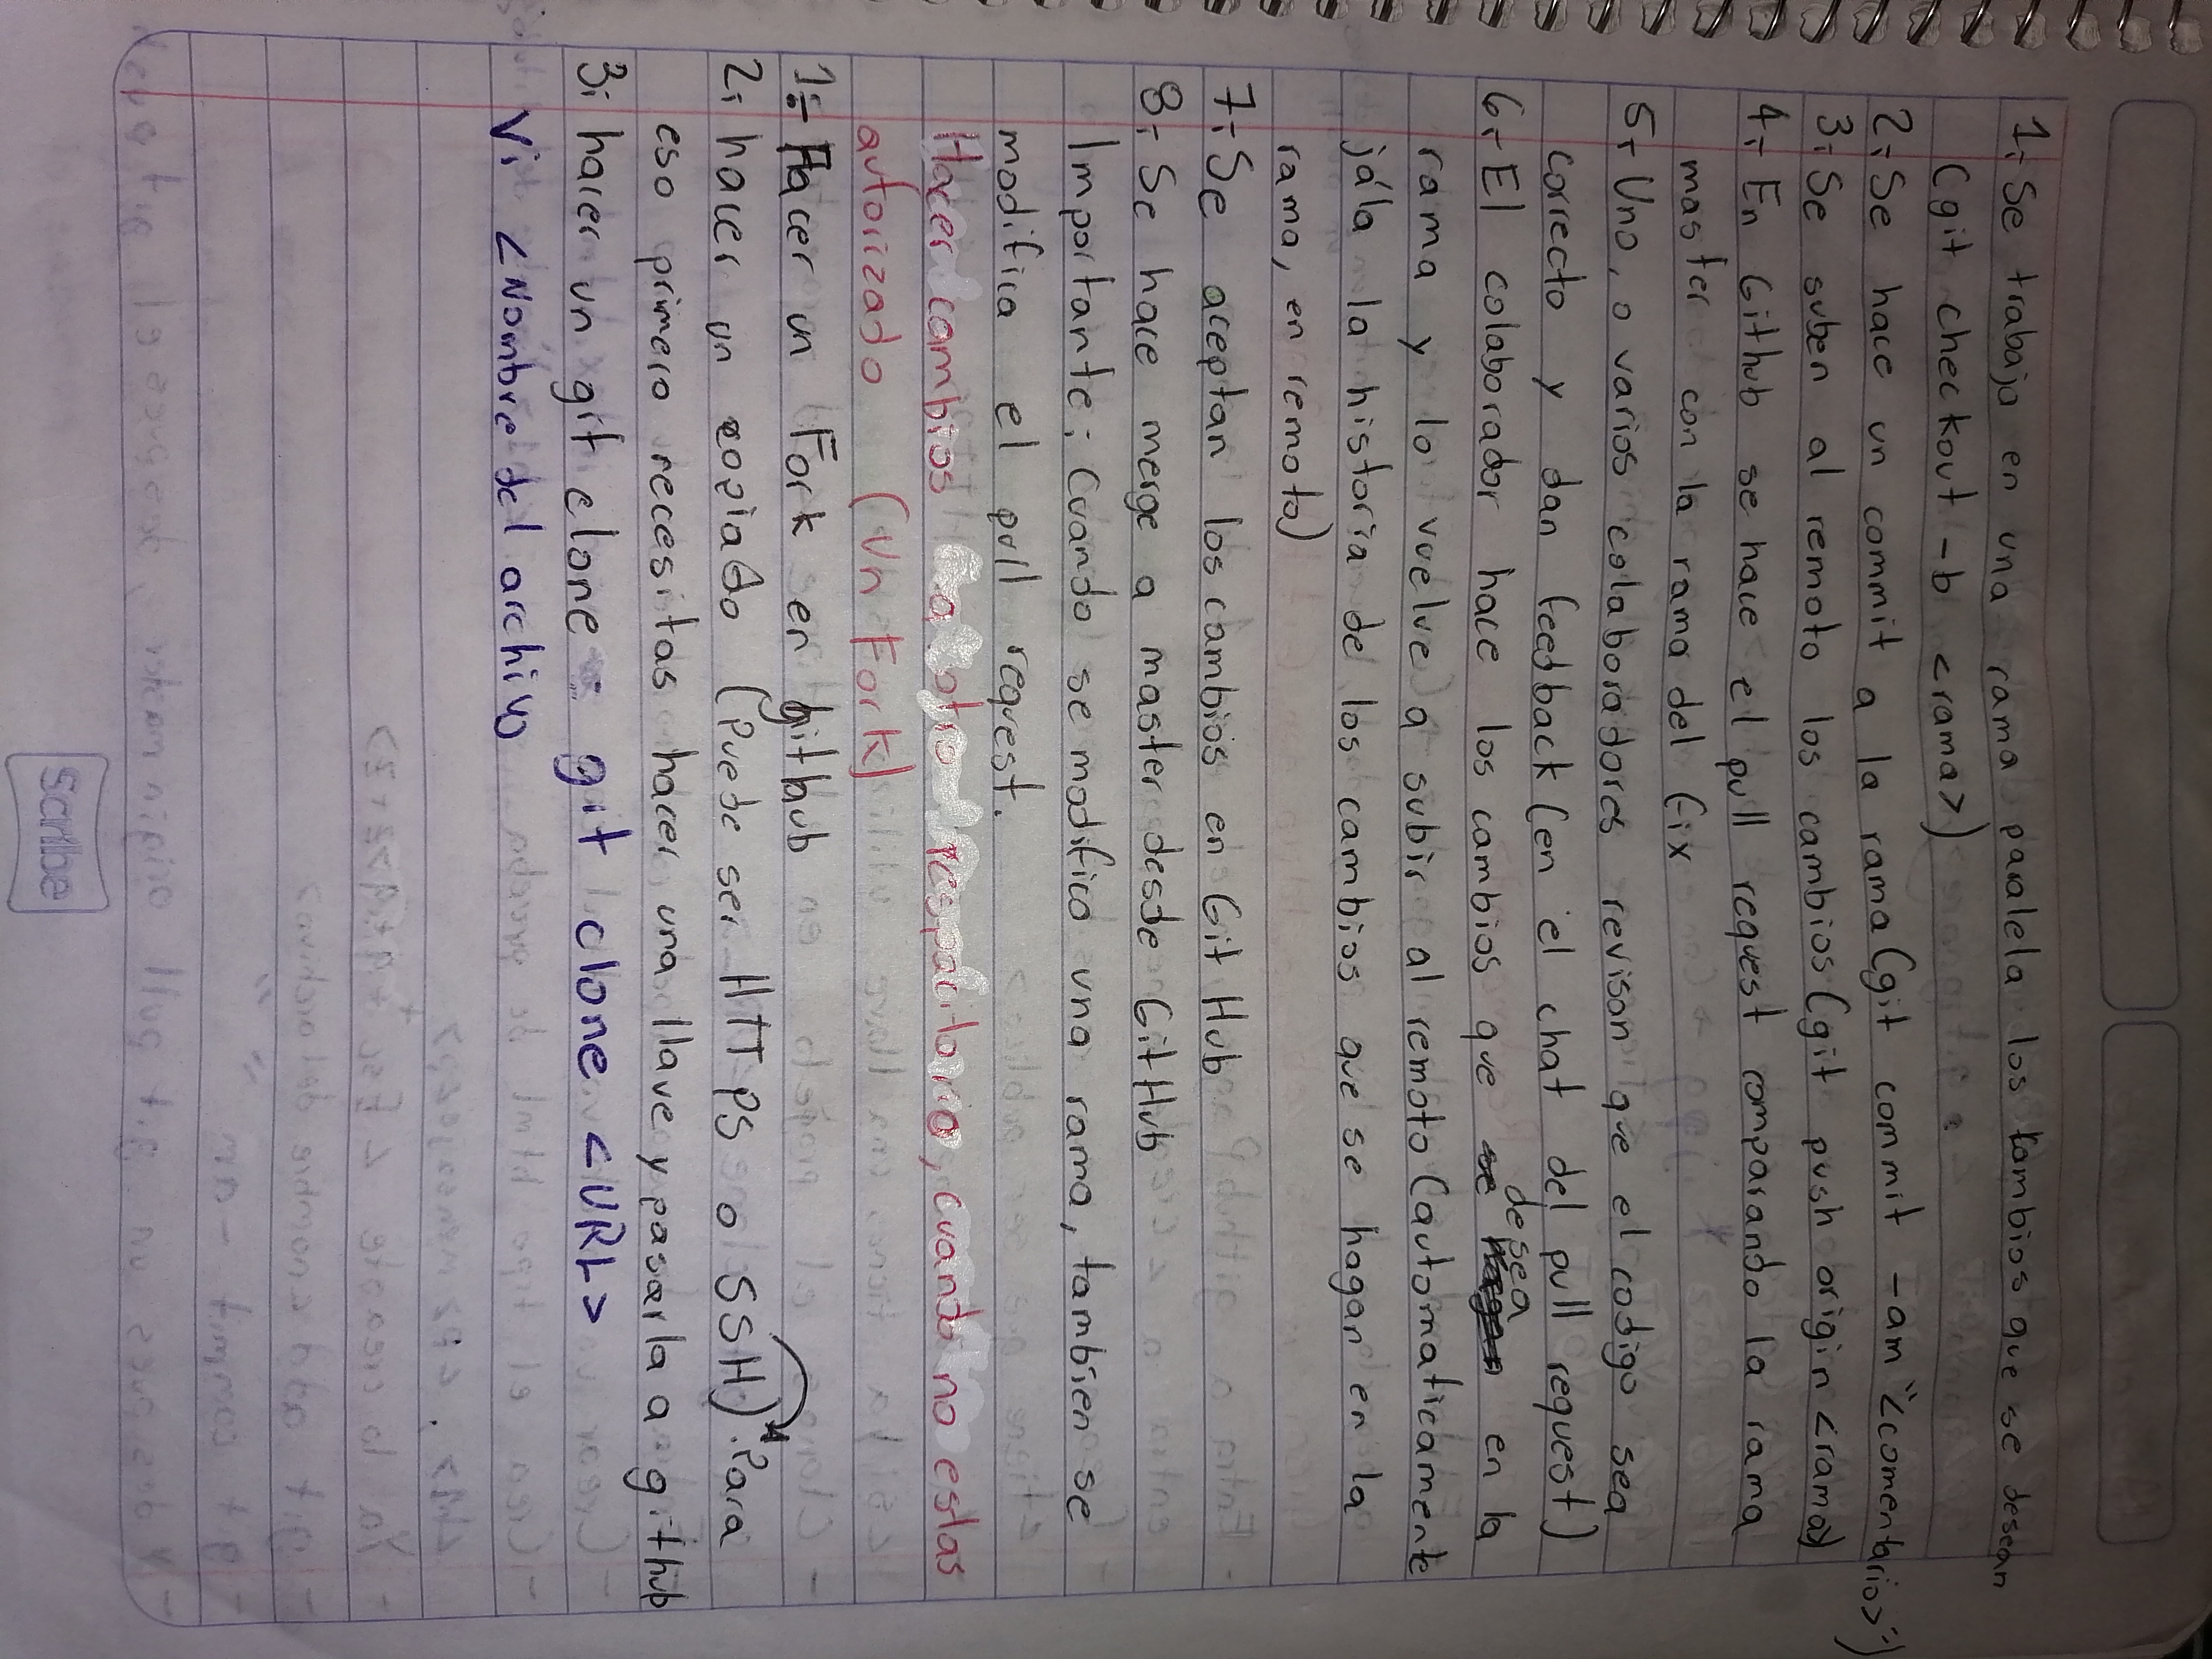 1.- Se trabaja en una rama paralela los cambios que se desean
(git checkout -b <rama>)
2.- Se hace un commit a la rama (git commit -am "<comentario>")
3.- Se suben al remoto los cambios (git push origin <rama>)
4.- En Github se hace el pull request comparando la rama
master con la rama del fix
5.- Uno, o varios colaboradores revisan que el codigo sea
correcto y dan feedback (en el chat del pull request)
6.- El colaborador hace los cambios que desea en la
rama y lo vuelve a subir al remoto (automaticamente
jála la historia de los cambios que se hagan en la
rama, en remoto)
7.- Se aceptan los cambios en Git Hub
8.- Se hace merge a master desde GitHub
Importante: Cuando se modifico una rama, tambien se
modifica el pull request.
Hacer cambios a otro respacitorio, cuando no estas
autorizado (Un Fork)
1.- Hacer un Fork en github
2.- hacer un copiado (Puede ser HTTPS o SSH). Para
eso primero necesitas hacer una llave y pasarla a github
3.- hacer un git clone : git clone <URL>
Vi <Nombre del archivo
Scribe